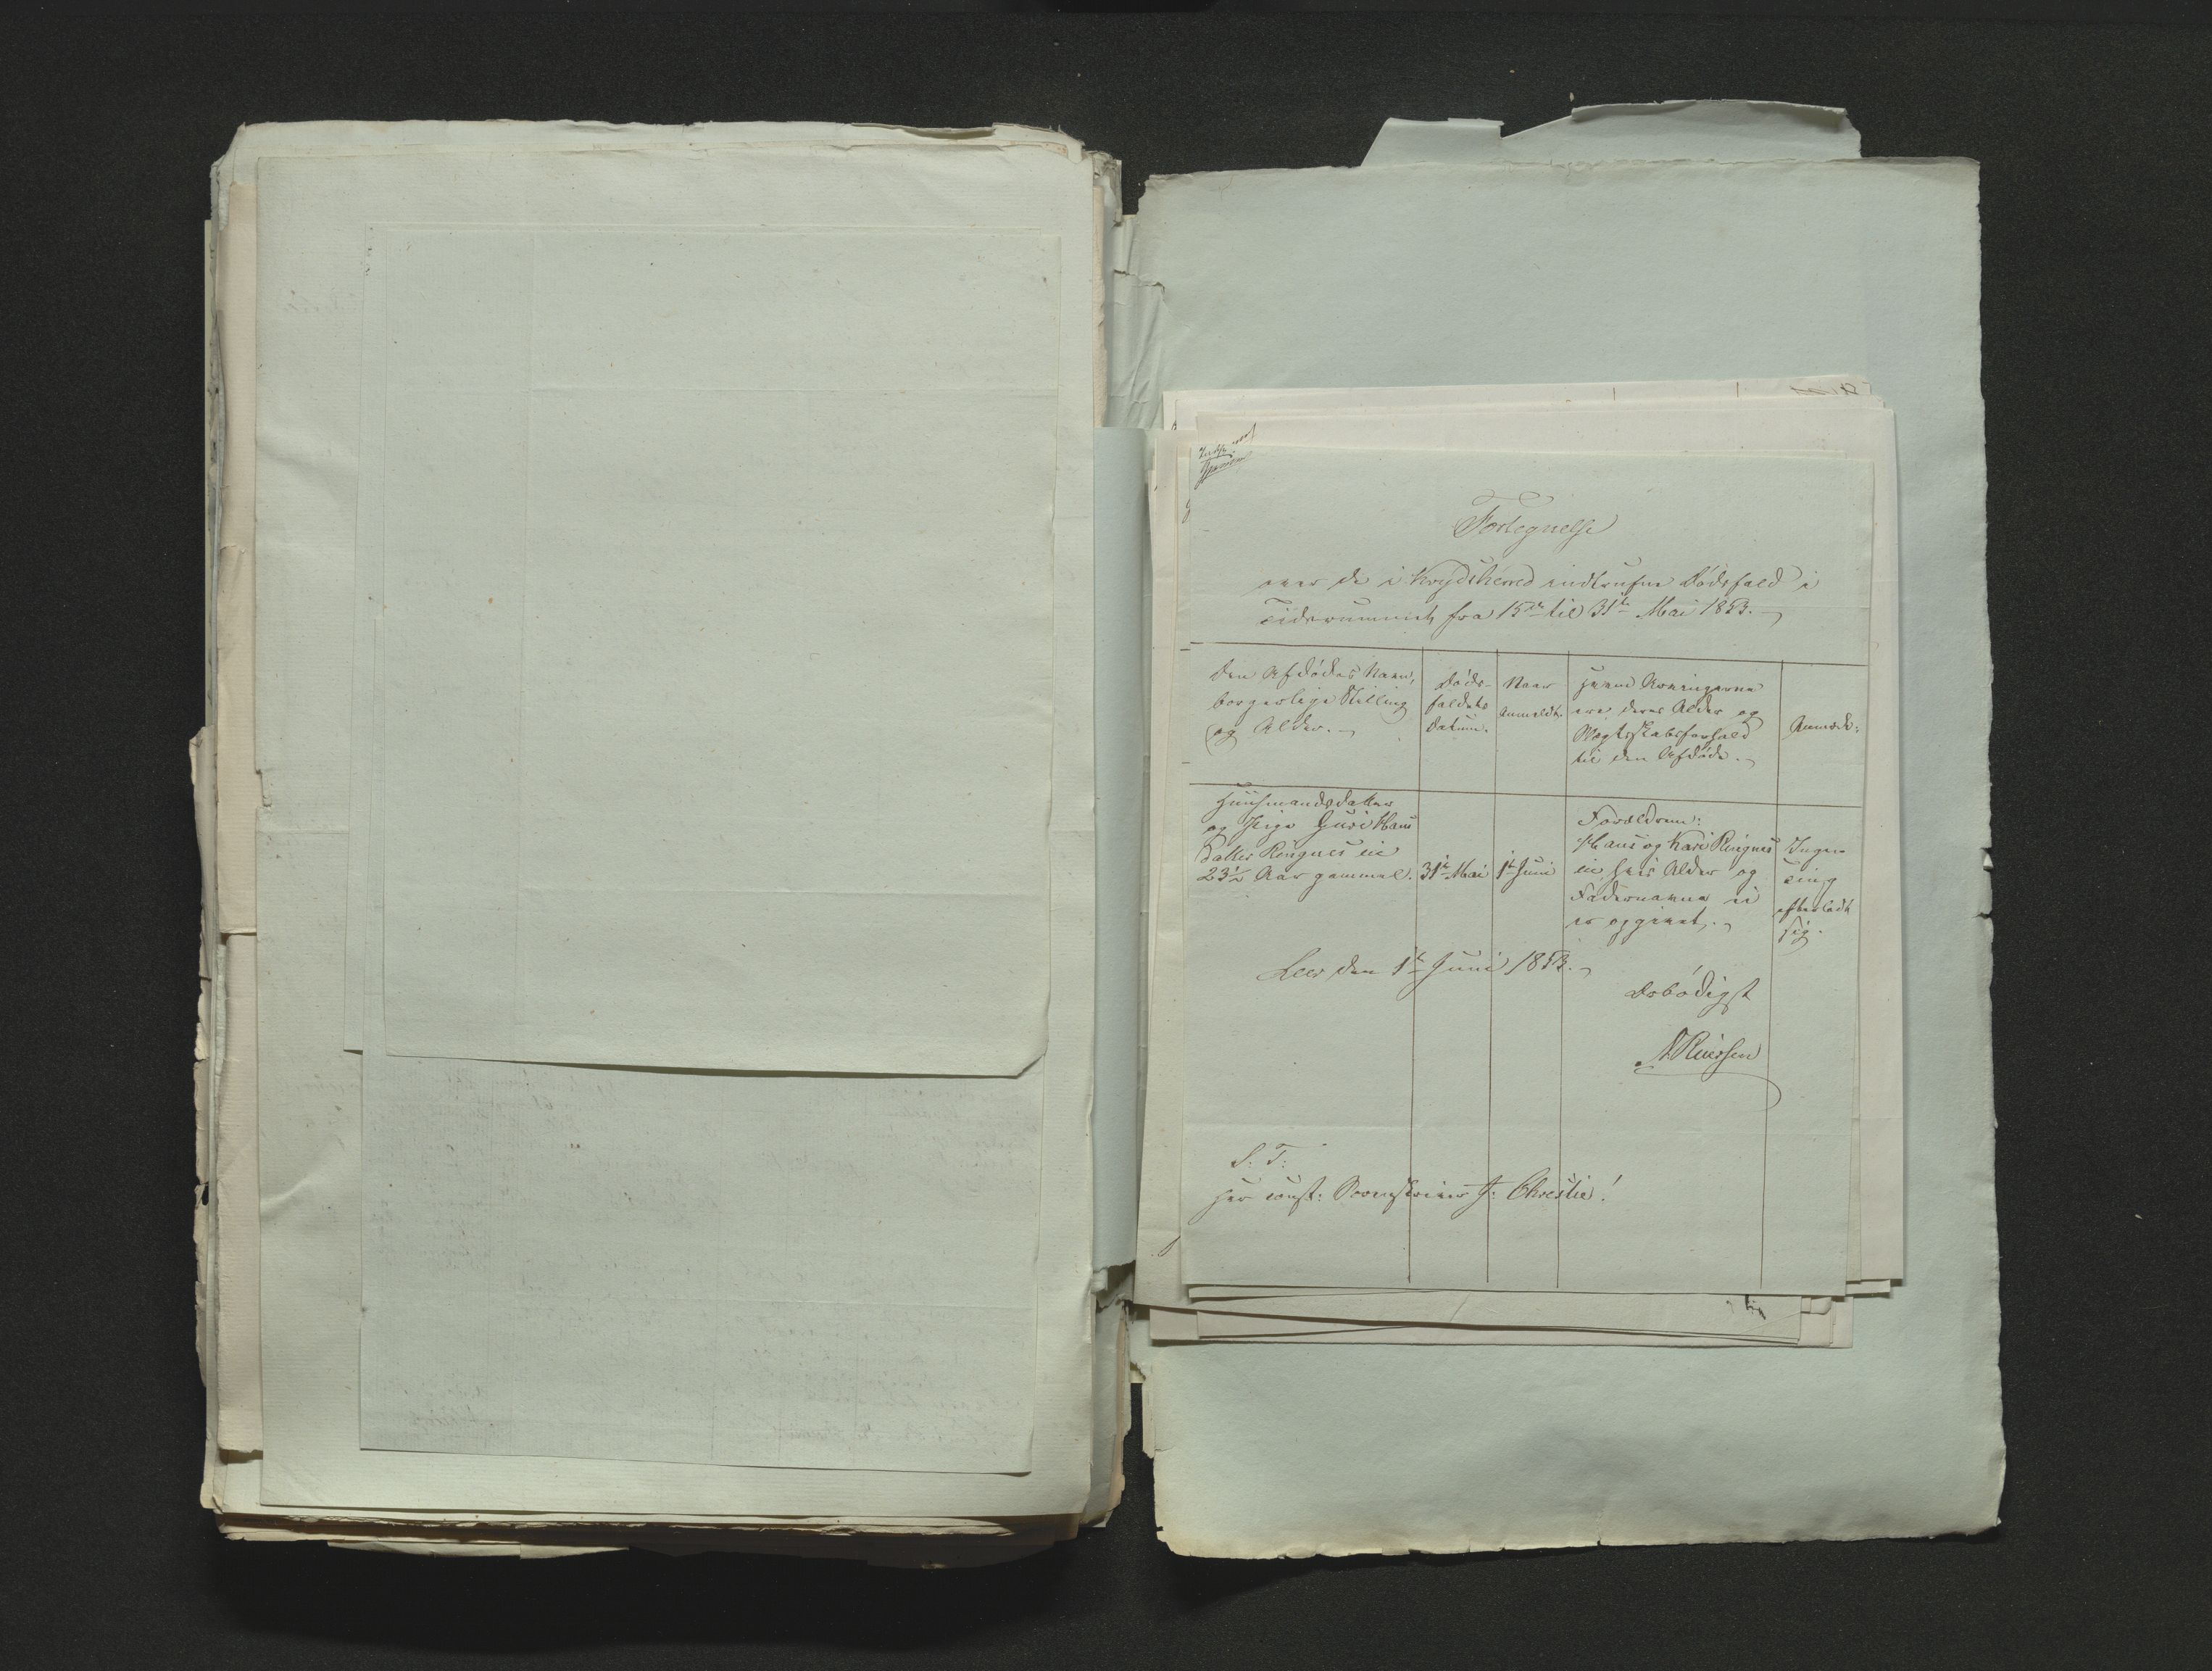 Fortegnelse
over de i Krydsherred indtrufne Dødsfald i
Tidsrummet fra 15de til 31te Mai 1853.
Den Afdødes Navn,
borgerlige Stilling
og Alder.
Døds-
faldets
Datum.
Naar
Anmeldt.
hvem Arvingerne
ere deres Alder og
Slægtskabsforhold
til den Afdøde.
Anmærk:
Huusmandsdatter
og Pige Guri Hans
Datter Ringnes eie
23½ Aar gammel.
31te Mai
1te Juni
Forældrene:
Hans og Kari Ringnes
eie, hvis Alder og
Fadernavne ei
er opgivet.
Ingen
ting
efterladt
sig.
Leer den 1te Juni 1853.
Ærbødigst
S: T:
Hr const: Sorenskriver J: Christie!